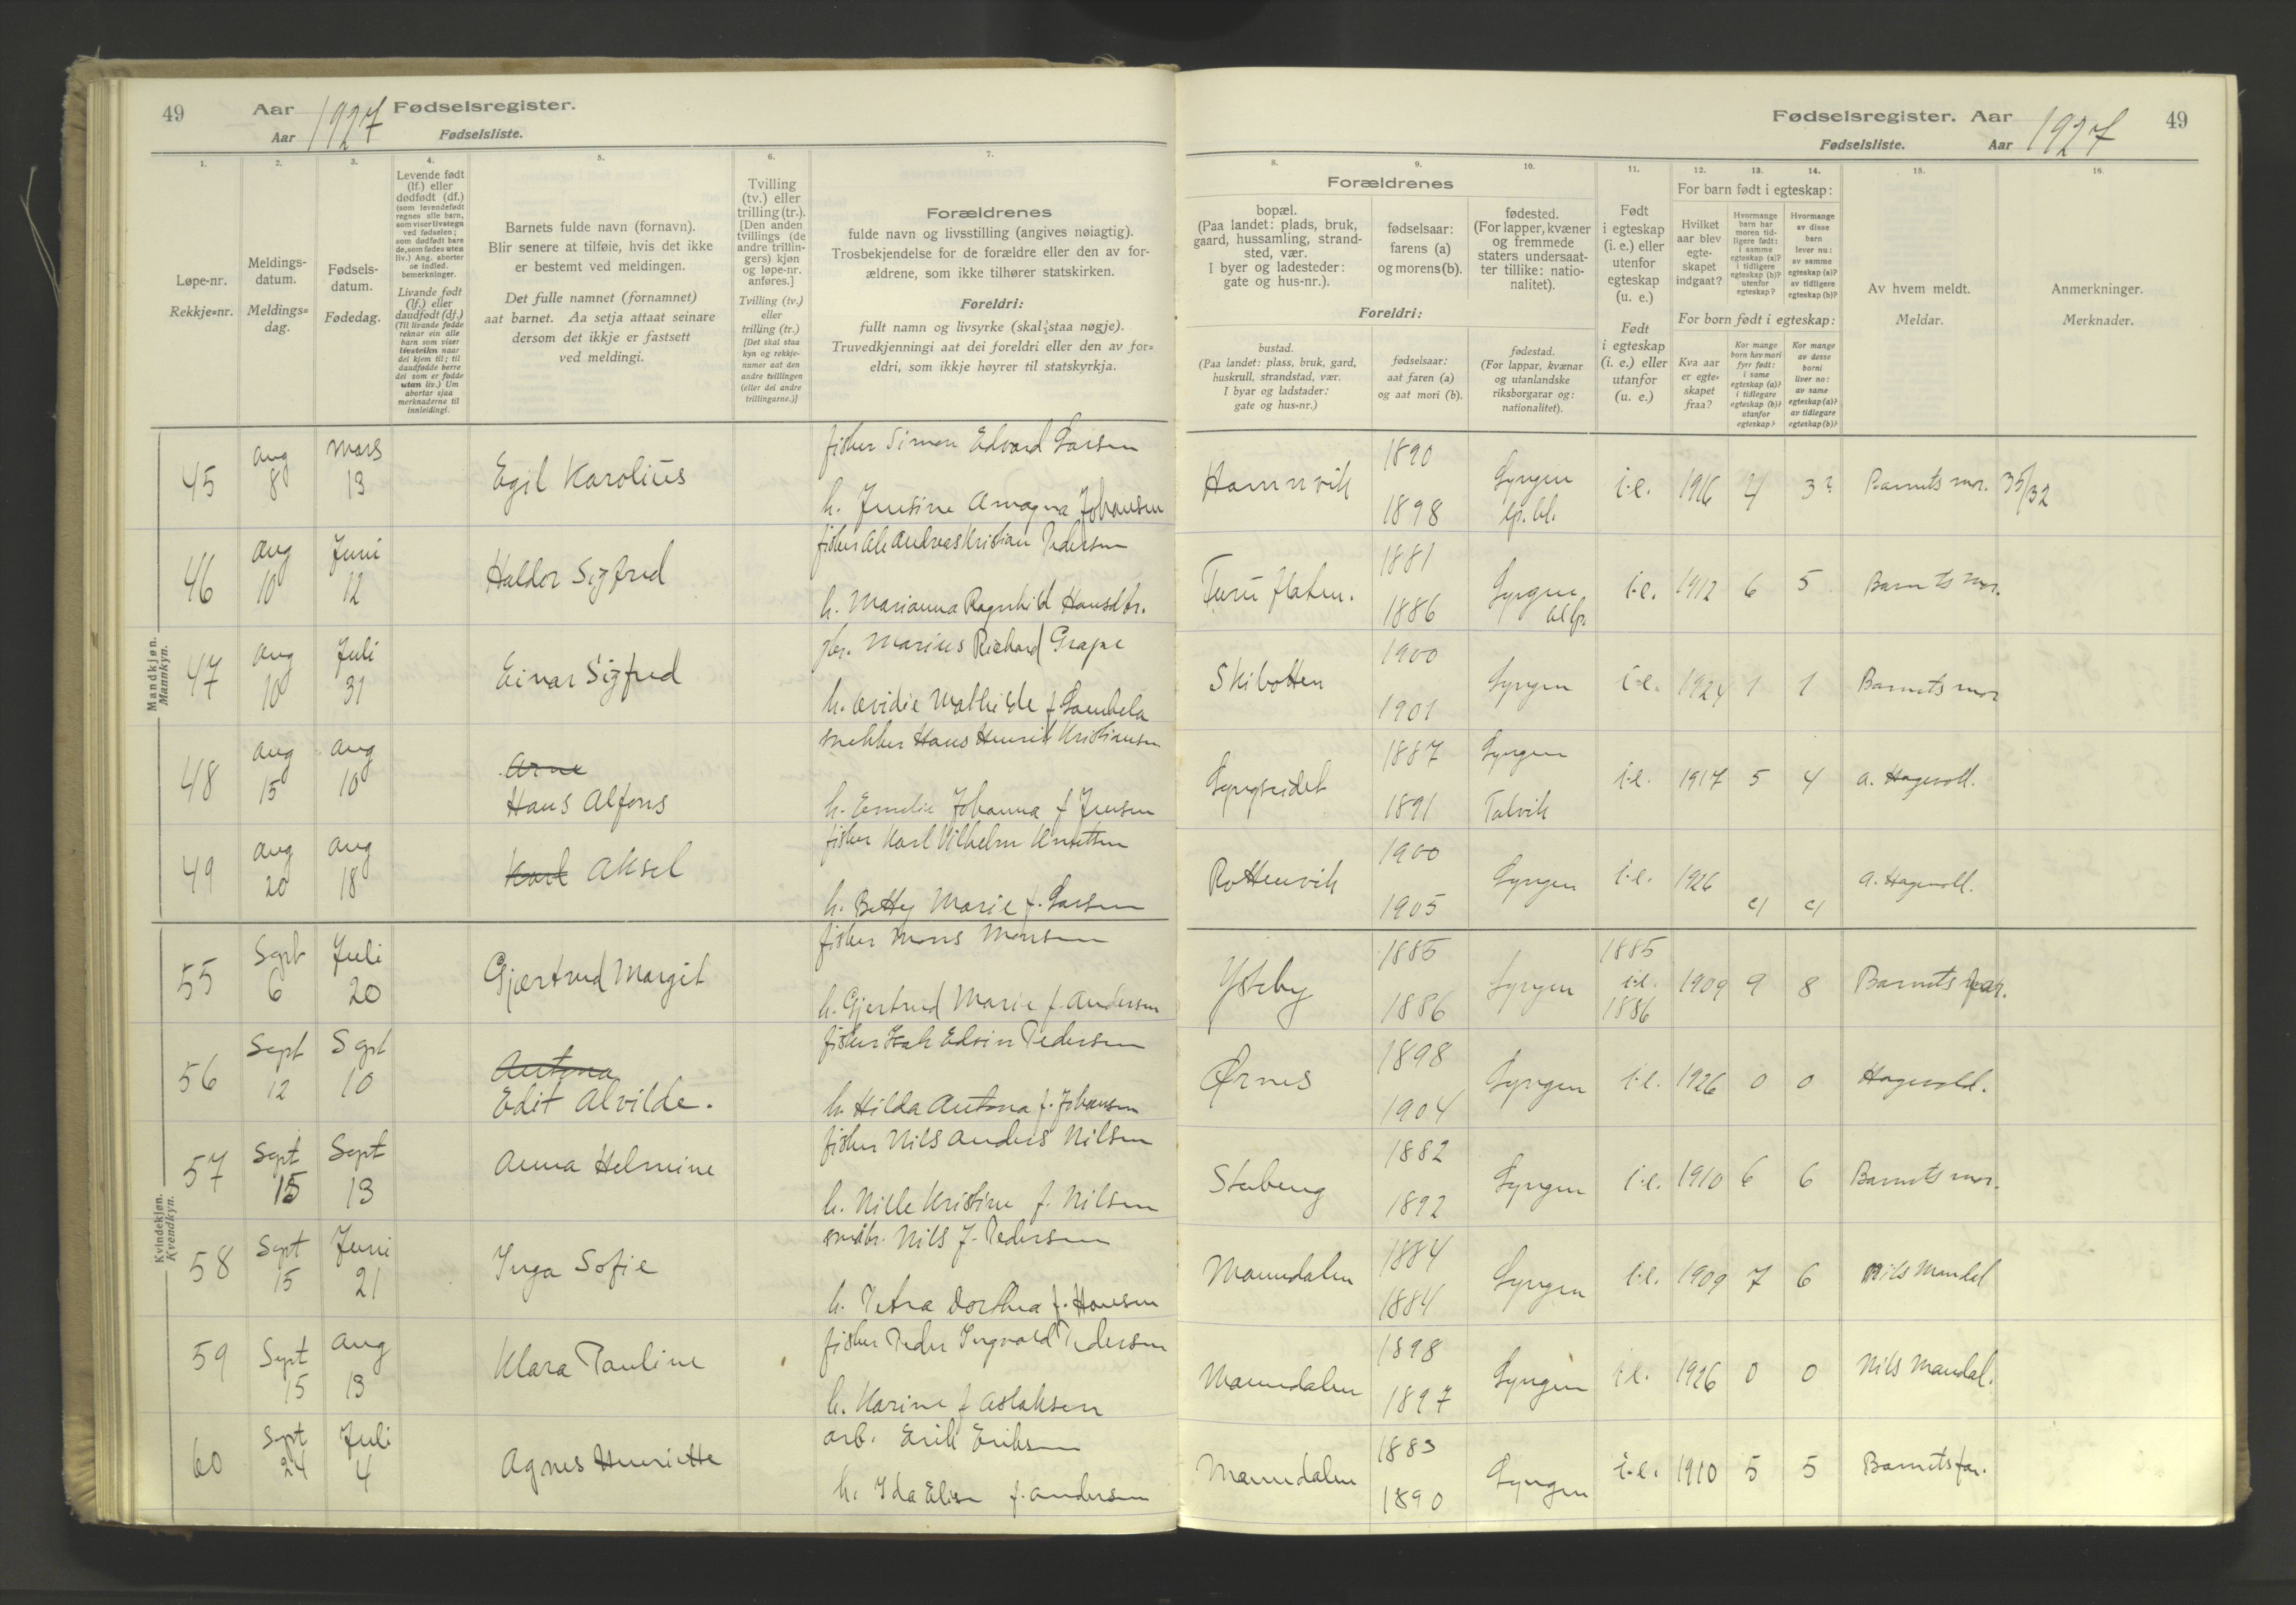 49 Aar 1927 Fødselsregister.
Aar Fødselsliste.
1. 2. 3. 4. 5. 6. 7.
Løpe-nr.
Rekkje=nr.
Meldings-
datum.
Meldings=
dag.
Fødsels-
datum.
Fødedag.
Levende født
(lf.) eller
dødfødt (df.)
(som levendefødt
regnes alle barn,
som viser livstegn
ved fødselen;
som dødfødt bare
de, som fødes uten
liv.) Ang. aborter
se indled.
bemerkninger.
Livande født
(lf.) eller
daudfødt (df.)
(Til livande fødde
reknar ein alle
barn som viser
livsteikn naar
dei kjem til; til
daudfødde berre
dei som er fødde
utan liv.) Um
abortar sjaa
merknaderne til
innleidingi.
Barnets fulde navn (fornavn).
Blir senere at tilføie, hvis det ikke
er bestemt ved meldingen.
Det fulle namnet (fornamnet)
aat barnet. Aa setja attaat seinare
dersom det ikkje er fastsett
ved meldingi.
Tvilling
(tv.) eller
trilling (tr.).
[Den anden
tvillings (de
andre trillin-
gers) kjøn
og løpe-nr.
anføres.]
Tvilling (tv.)
eller
trilling (tr.)
[Det skal staa
kyn og rekkje-
numer aat den
andre tvillingen
(eller dei andre
trillingarne.)]
Forældrenes
fulde navn og livsstilling (angives nøiagtig).
Trosbekjendelse for de forældre eller den av for-
ældrene, som ikke tilhører statskirken.
Foreldri:
fullt namn og livsyrke (skal staa nøgje).
Truvedkjenningi aat dei foreldri eller den av for=
eldri, som ikkje høyrer til statskyrkja.
Mandkjøn.
Mannkyn.
45 Aug 8 Mars 13 Egil Karolius fisker Simon Edvard Larsen
h. Jensine Amagna Johansen
46 Aug 10 Juni 12 Haldor Sigfred fisker Ole Andreas Kristian Pedersen
h. Marianna Ragnhild Hansdtr.
47 Aug 10 Juli 31 Einar Sigfred gbr. Marius Richard Grape
h. Ovidie Mathilde f. Lambela
48 Aug 15 Aug 10 Arne
Hans Alfons
snekker Hans Henrik Kristiansen
h. Emelie Johanna f Jensen
49 Aug 20 Aug 18 Karl Aksel fisker Karl Vilhelm Knutsen
h. Betty Marie f. Larsen
Kvindekjøn.
Kvendkyn.
55 Sept 6 Juli 20 Gjertrud Margit fisker Mons Monsen
h. Gjertrud Marie f. Andersen
56 Sept 12 Sept 10 Antona
Edit Alvilde.
fisker Isak Edvin Pedersen
h. Hilda Antona f. Johansen
57 Sept 15 Sept 13 Anna Helmine fisker Nils Anders Nilsen
h. Nille Kristine f. Nilsen
58 Sept 15 Juni 21 Inga Sofie småbr. Nils J. Pedersen
h. Petra Dorthea f. Hansen
59 Sept 15 Aug 13 Klara Pauline fisker Peder Ingvald Pedersen
h. Karine f Aslaksen
60 Sept 24 Juli 4 Agnes Henriette arb. Erik Eriksen
h. Ida Elise f. Andersen
Fødselsregister. Aar 1927 49
Fødselsliste. Aar
8. 9. 10. 11. 12. 13. 14. 15. 16.
Forældrenes
bopæl.
(Paa landet: plads, bruk,
gaard, hussamling, strand-
sted, vær.
I byer og ladesteder:
gate og hus-nr.).
fødselsaar:
farens (a)
og morens (b).
fødested.
(For lapper, kvæner
og fremmede
staters undersaat-
ter tillike: natio-
nalitet).
Foreldri:
bustad.
(Paa landet: plass, bruk, gard,
huskrull, strandstad, vær.
I byar og ladstader:
gate og hus=nr.)
fødselsaar:
aat faren (a)
og aat mori (b).
fødestad.
(For lappar, kvænar
og utanlandske
riksborgarar og:
nationalitet).
Født
i egteskap
(i. e.) eller
utenfor
egteskap
(u. e.)
Født
i egteskap
(i. e.) eller
utanfor
(u. e.)
For barn født i egteskap:
Hvilket
aar blev
egte-
skapet
indgaat?
Hvormange
barn har
moren tid-
ligere født:
i samme
egteskap (a)?
i tidligere
egteskap (b)?
utenfor
egteskap?
Hvormange
av disse
barn
lever nu:
av samme
egteskap (a)?
av tidligere
egteskap (b)?
For born født i egteskap:
Kva aar
er egte=
skapet
fraa?
Kor mange
born hev mori
fyrr født:
i same
egteskap (a)?
i tidlegare
egteskap (b)?
utanfor
egteskap?
Kor mange
av desse
borni
liver no:
av same
egteskap (a)?
av tidlegare
egteskap (b)?
Av hvem meldt.
Meldar.
Anmerkninger.
Merknader.
Hamnvik 1890 1898 Lyngen lp. bl. i.e. 1916 4 3? Barnets mor. 35/32
Furuflaten. 1881 1886 Lyngen bl lp i.e. 1912 6 5 Barnets mor.
Skibotten 1900 1901 Lyngen i.e. 1924 1 1 Barnets mor
Lyngseidet 1887 1891 Lyngen Talvik i.e. 1917 5 4 A. Hagevold.
Rottenvik 1900 1905 Lyngen i.e. 1926 A. Hagevold.
Ytreby 1885 1886 Lyngen 1885 i.e. 1886 1909 9 8 Barnets far.
Ørnes 1898 1904 Lyngen i.e. 1926 0 0 Hagevold.
Steberg 1882 1892 Lyngen i.e. 1910 6 6 Barnets mor.
Manndalen 1884 1884 Lyngen i.e. 1909 7 6 Nils Mandal
Manndalen 1898 1897 Lyngen i.e. 1926 0 0 Nils Mandal.
Manndalen 1883 1890 Lyngen i.e. 1910 5 5 Barnets far.